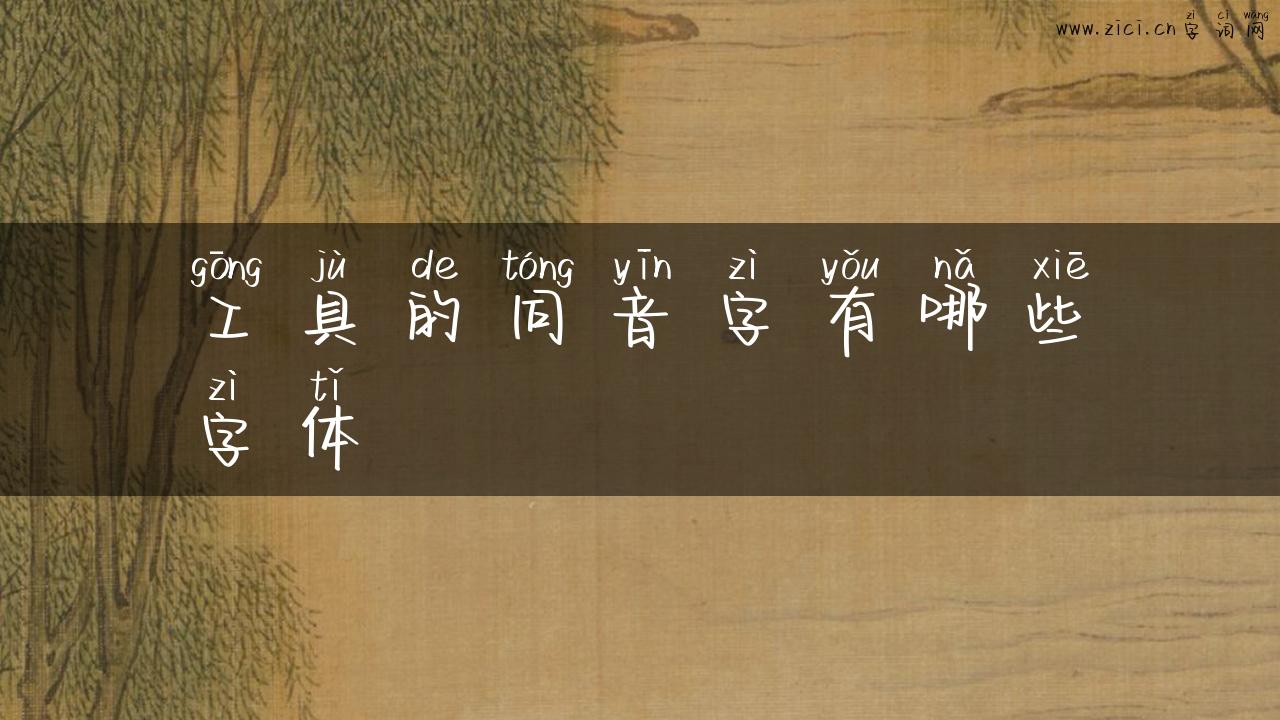 zì cí wǎng
www.zici.cn字词网
gōng jù de tóng yīn zì yǒu nǎ xiē
工具的同音字有哪些
zì tǐ
字体